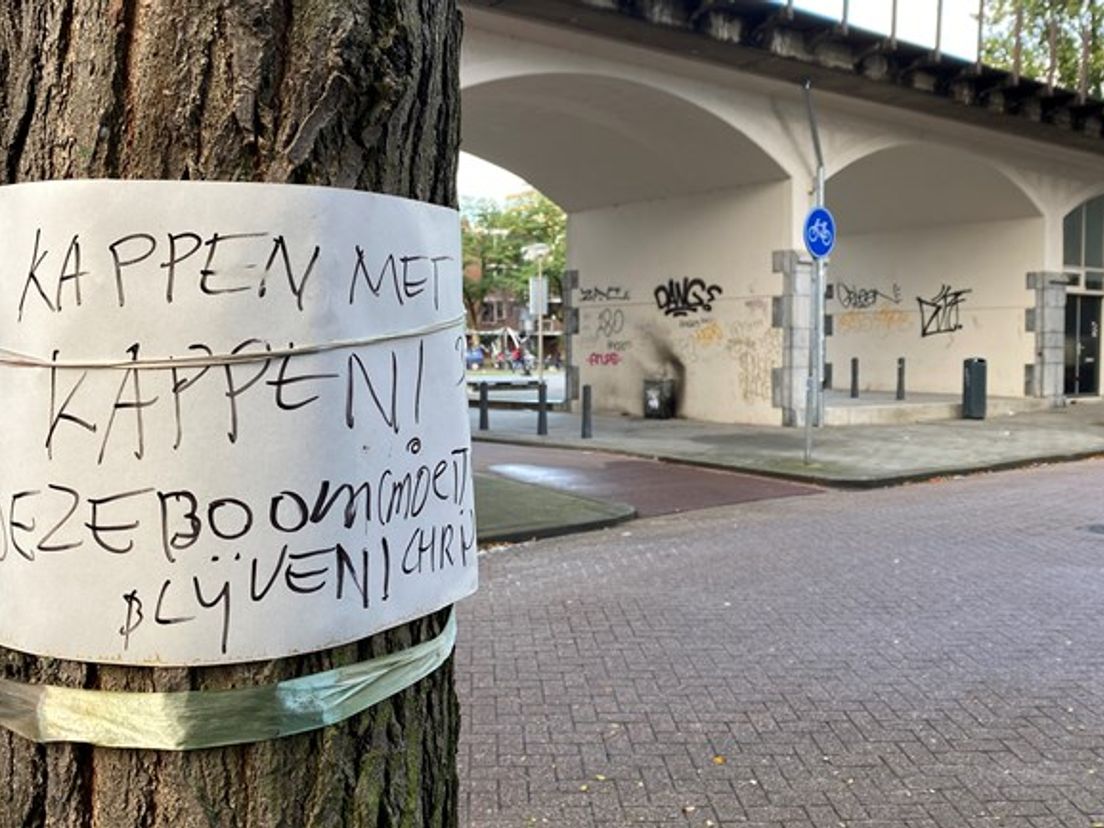 KAPPEN MET
KAPPEN!
DEZE BOOM (MOET)
BLIJVEN! CHRI
DANGS